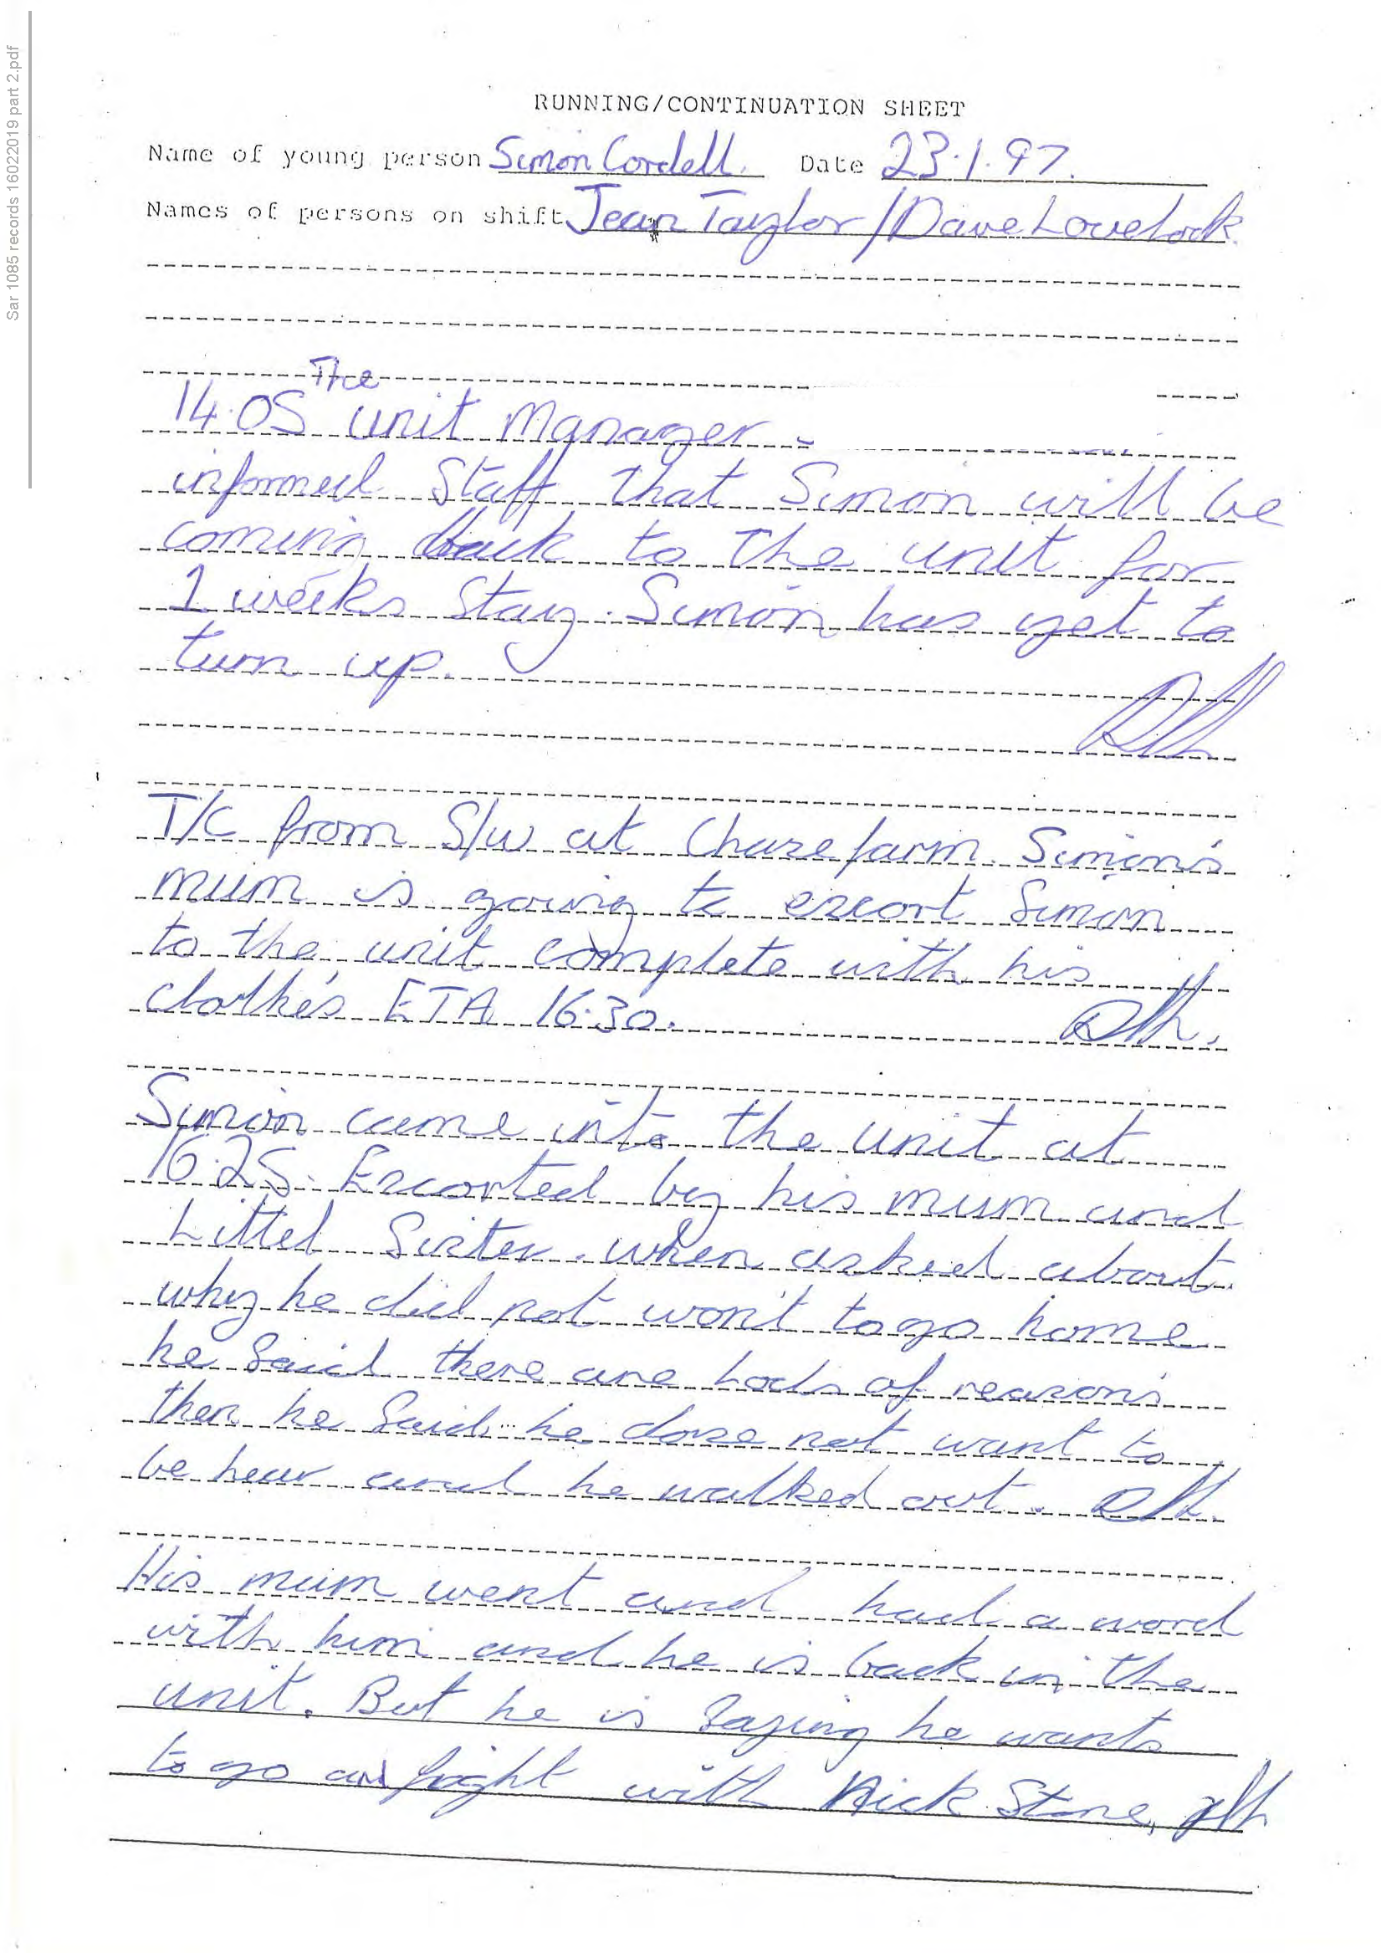 Sar 1085 records 16022019 part 2.pdf
RUNNING/CONTINUATION SHEET
Name of young person Simon Cordell. Date 23.1.97.
Names of persons on shift Jean Taylor/Dave Lovelock.
The
14.05 unit Manager -
informed Staff that Simon will be
coming back to the unit for
1 weeks stay. Simon has yet to
turn up.
T/C from S/W at Chasefarm. Simon's
mum is going to escort Simon
to the unit complete with his
clothes ETA 16.30.
Simon came into the unit at
16.25. Escorted by his mum and
Littel Sister. when asked about
why he did not won't to go home
he said there are Lods of reason's
then he said he dose not want to
be hear and he walked out.
His mum went and had a word
with him and he is back in the
unit. But he is saying he wants
to go and fight with Nick Stone,